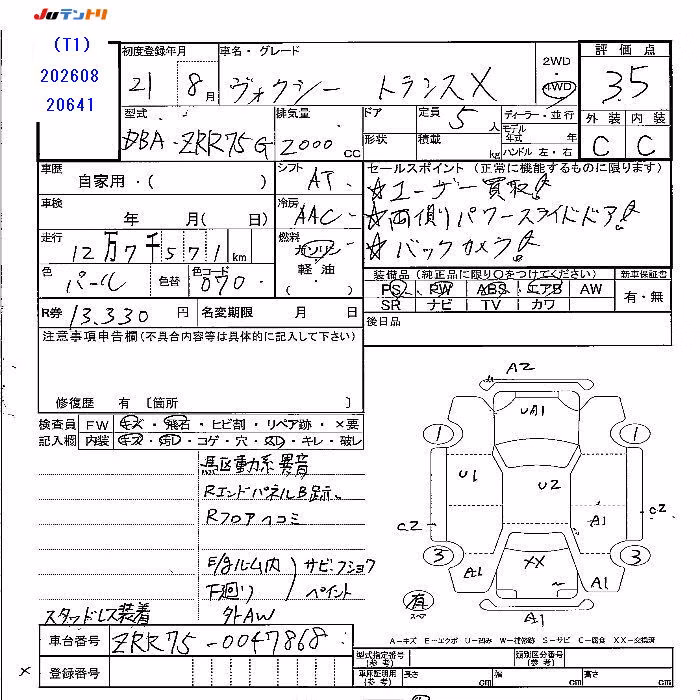 Juテントリ
(T1)
202608
20641
初度登録年月
21年8月
車名・グレード
ヴォクシー トランスX
2WD
4WD
評価点
3.5
外装 内装
C C
型式
DBA-ZRR75G
排気量
2000cc
ドア
形状
定員 5人
積載 kg
ディーラー・並行
モデル年式 年
ハンドル 左・右
車歴
自家用・( )
シフト
AT
セールスポイント(正常に機能するものに限ります)
☆ユーザー買取!
☆両側パワースライドドア!
☆バックカメラ!
車検
年 月( 日)
冷房
AAC
走行
12万7千571km
燃料
ガソリン
軽油
( ・ )
色
パール
色替
色コード
070
装備品(純正品に限り○をつけてください)
新車保証書
PS PW ABS エアB AW
SR ナビ TV カワ
有・無
R券 13.330円
名変期限 月 日
後日品
注意事項申告欄(不具合内容等は具体的に記入して下さい)
修復歴 有 〔箇所
検査員記入欄
FW キズ・飛石・ヒビ割・リペア跡・×要
内装 キズ・汚レ・コゲ・穴・スレ・キレ・破レ
駆動系異音
RエンドパネルB跡
Rフロアヘコミ
E/gルーム内
下廻り
サビ.フショク
ペイント
スタッドレス装着
外AW
A2
UA1
1 1
U1 U2
C2 A1 C2
3 3
A1 XX A1
有
スペア
A1
A-キズ E-エクボ U-凹み W-補修跡 S-サビ C-腐食 XX-交換済
車台番号 ZRR75-0047868
× 登録番号
型式指定番号(参考)
類別区分番号(参考)
車庫証明用(参考)
長さ cm
幅 cm
高さ cm